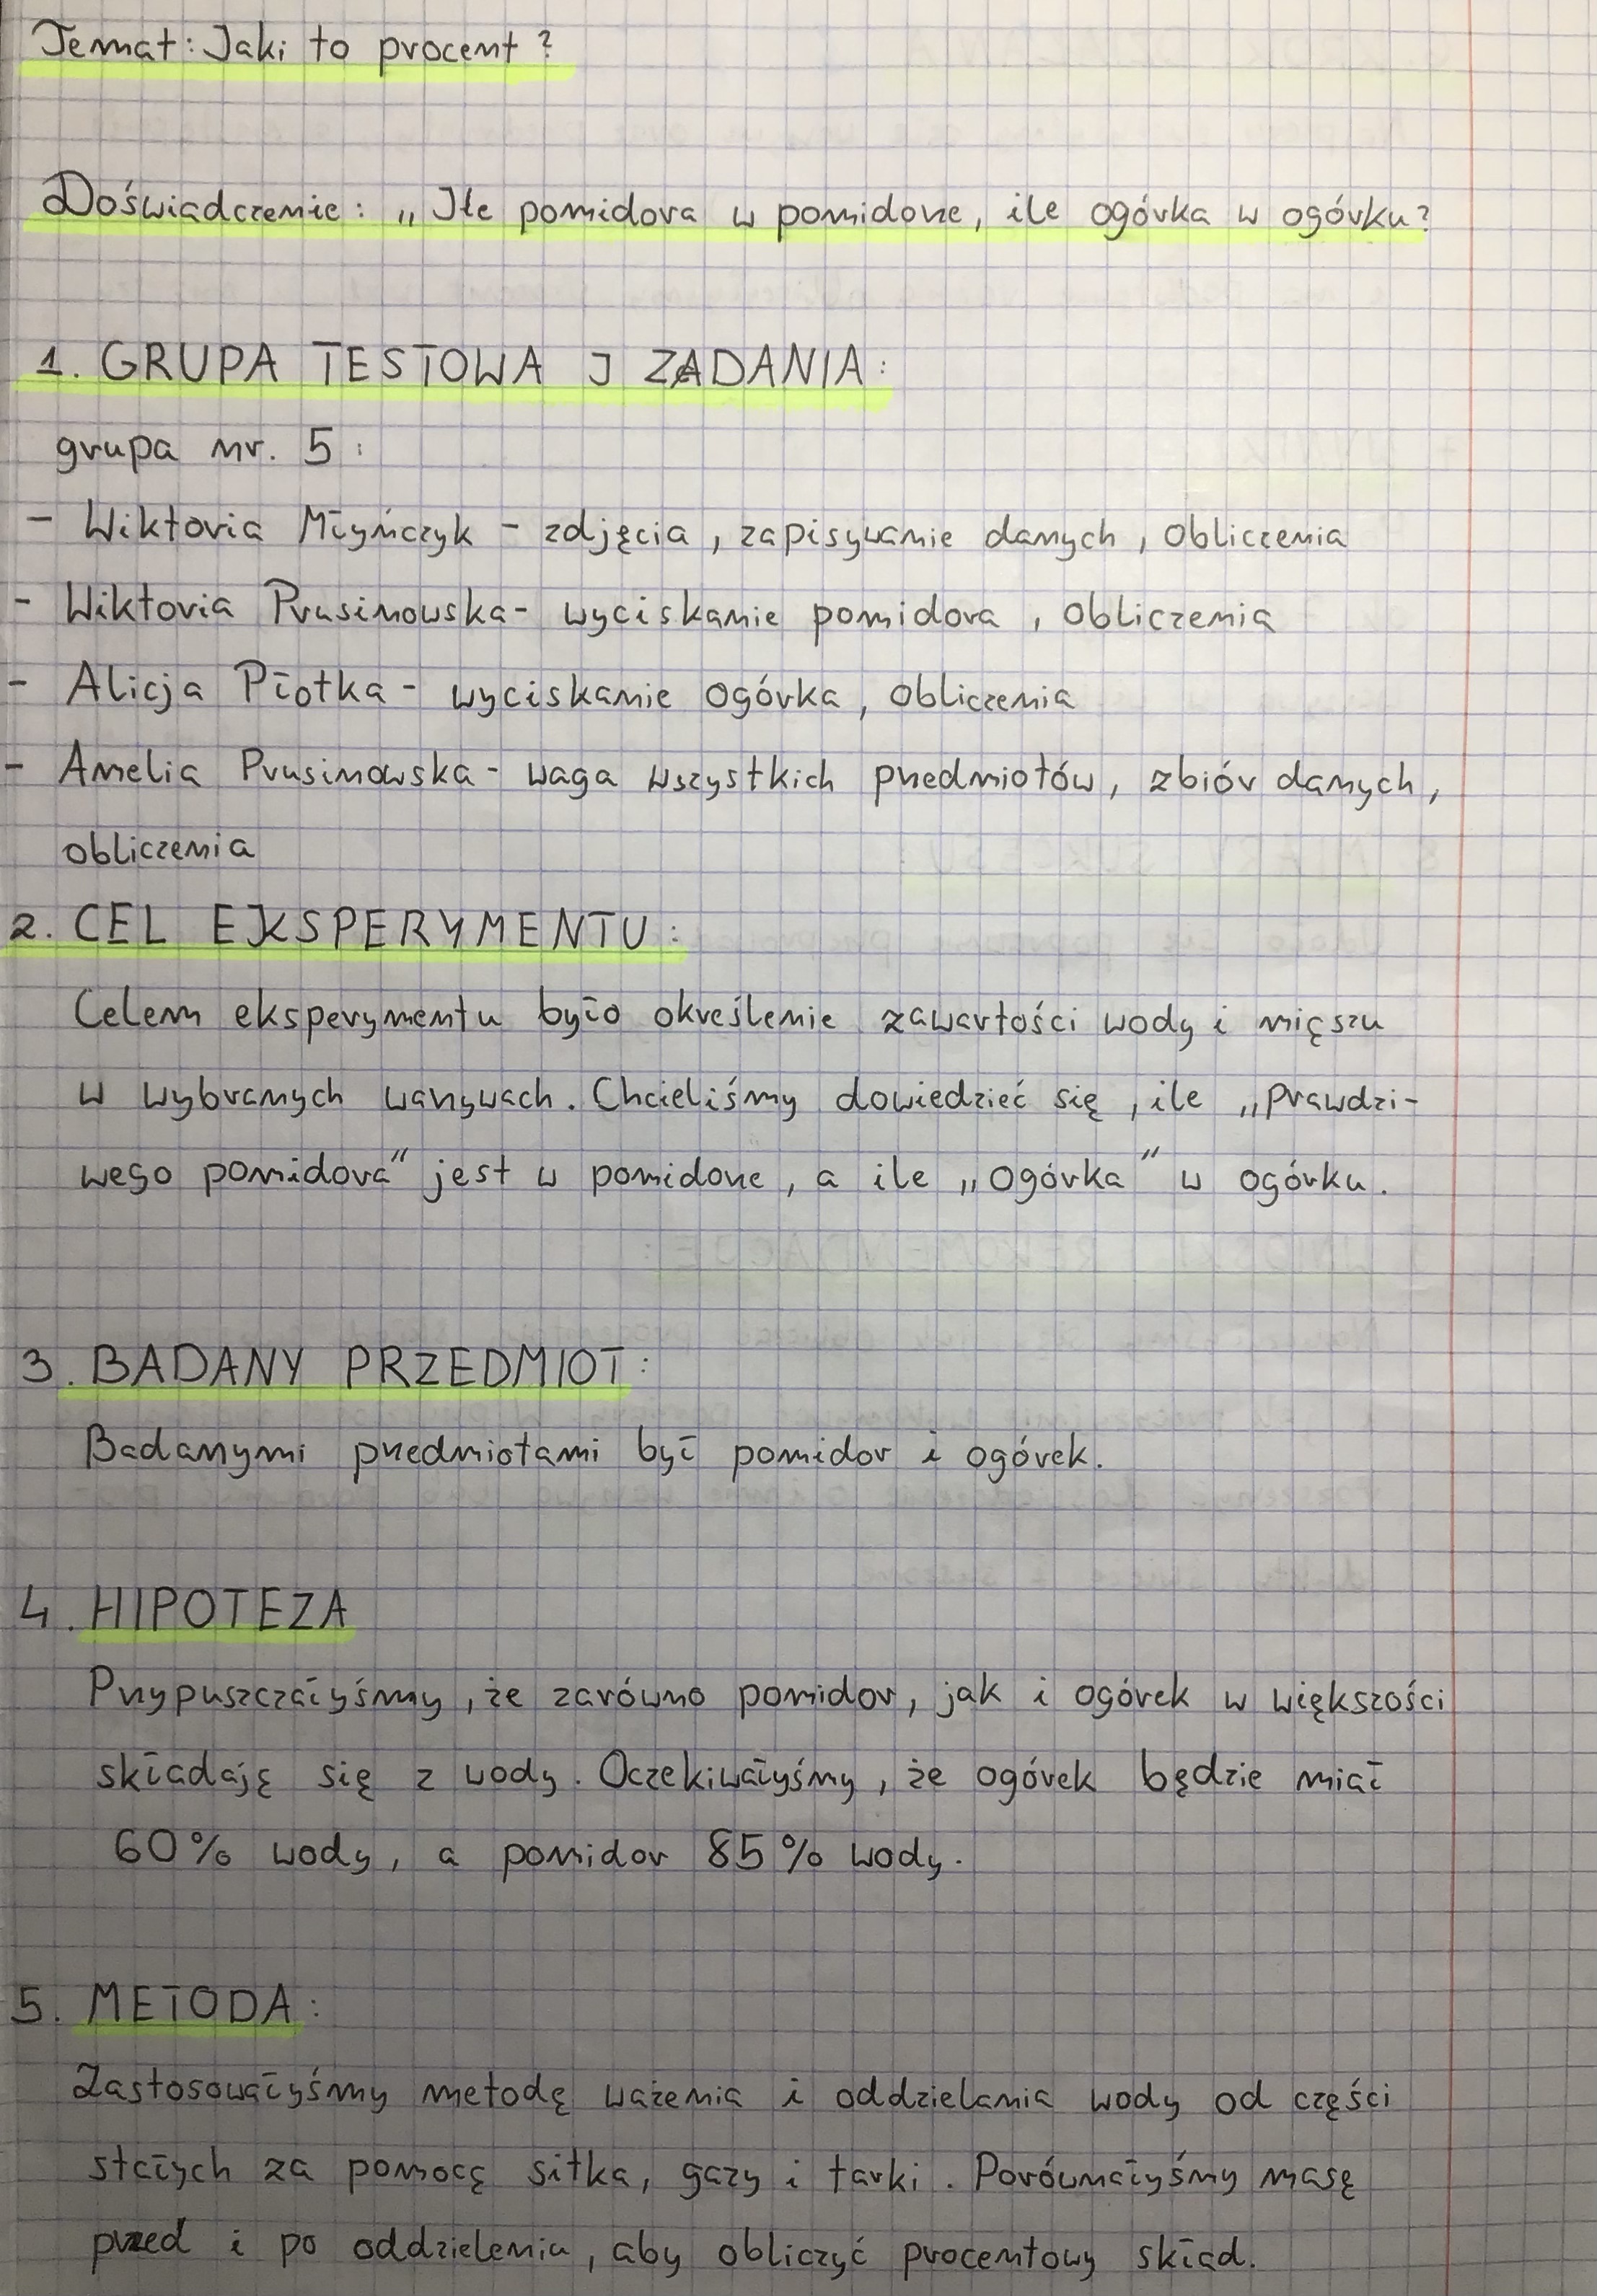 Temat: Jaki to procent?
Doświadczenie: „Ile pomidora w pomidorze, ile ogórka w ogórku?
1. GRUPA TESTOWA I ZADANIA:
grupa nr. 5:
- Wiktoria Młyńczyk - zdjęcia, zapisywanie danych, obliczenia
- Wiktoria Prusinowska - wyciskanie pomidora, obliczenia
- Alicja Płotka - wyciskanie ogórka, obliczenia
- Amelia Prusinowska - waga wszystkich przedmiotów, zbiór danych,
obliczenia
2. CEL EKSPERYMENTU:
Celem eksperymentu było określenie zawartości wody i miąszu
w wybranych warzywach. Chcieliśmy dowiedzieć się, ile „prawdzi-
wego pomidora” jest w pomidorze, a ile „ogórka” w ogórku.
3. BADANY PRZEDMIOT:
Badanymi przedmiotami był pomidor i ogórek.
4. HIPOTEZA
Przypuszczałyśmy, że zarówno pomidor, jak i ogórek w większości
składają się z wody. Oczekiwałyśmy, że ogórek będzie miał
60% wody, a pomidor 85% wody.
5. METODA:
Zastosowałyśmy metodę ważenia i oddzielania wody od części
stałych za pomocą sitka, gazy i tarki. Porównałyśmy masę
przed i po oddzieleniu, aby obliczyć procentowy skład.